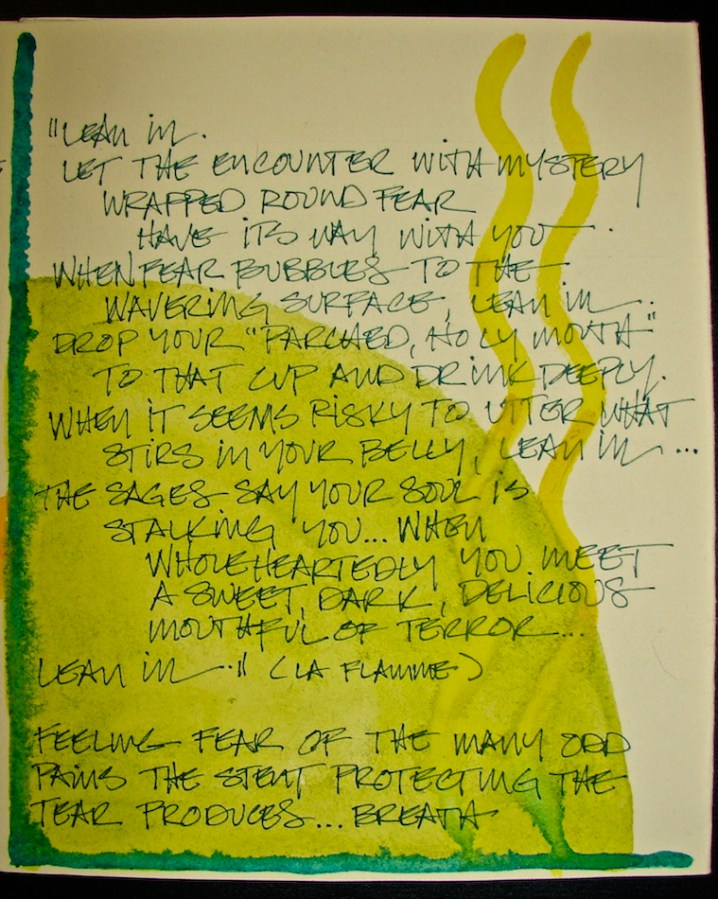 "LEAN IN.
LET THE ENCOUNTER WITH MYSTERY
WRAPPED ROUND FEAR
HAVE ITS WAY WITH YOU.
WHEN FEAR BUBBLES TO THE
WAVERING SURFACE, LEAN IN...
DROP YOUR "PARCHED, HOLY MOUTH"
TO THAT CUP AND DRINK DEEPLY.
WHEN IT SEEMS RISKY TO UTTER WHAT
STIRS IN YOUR BELLY, LEAN IN...
THE SAGES SAY YOUR SOUL IS
STALKING YOU... WHEN
WHOLEHEARTEDLY YOU MEET
A SWEET, DARK, DELICIOUS
MOUTHFUL OF TERROR...
LEAN IN.." (LA FLAMME)
FEELING FEAR OF THE MANY ODD
PAINS THE STENT PROTECTING THE
TEAR PRODUCES... BREATH